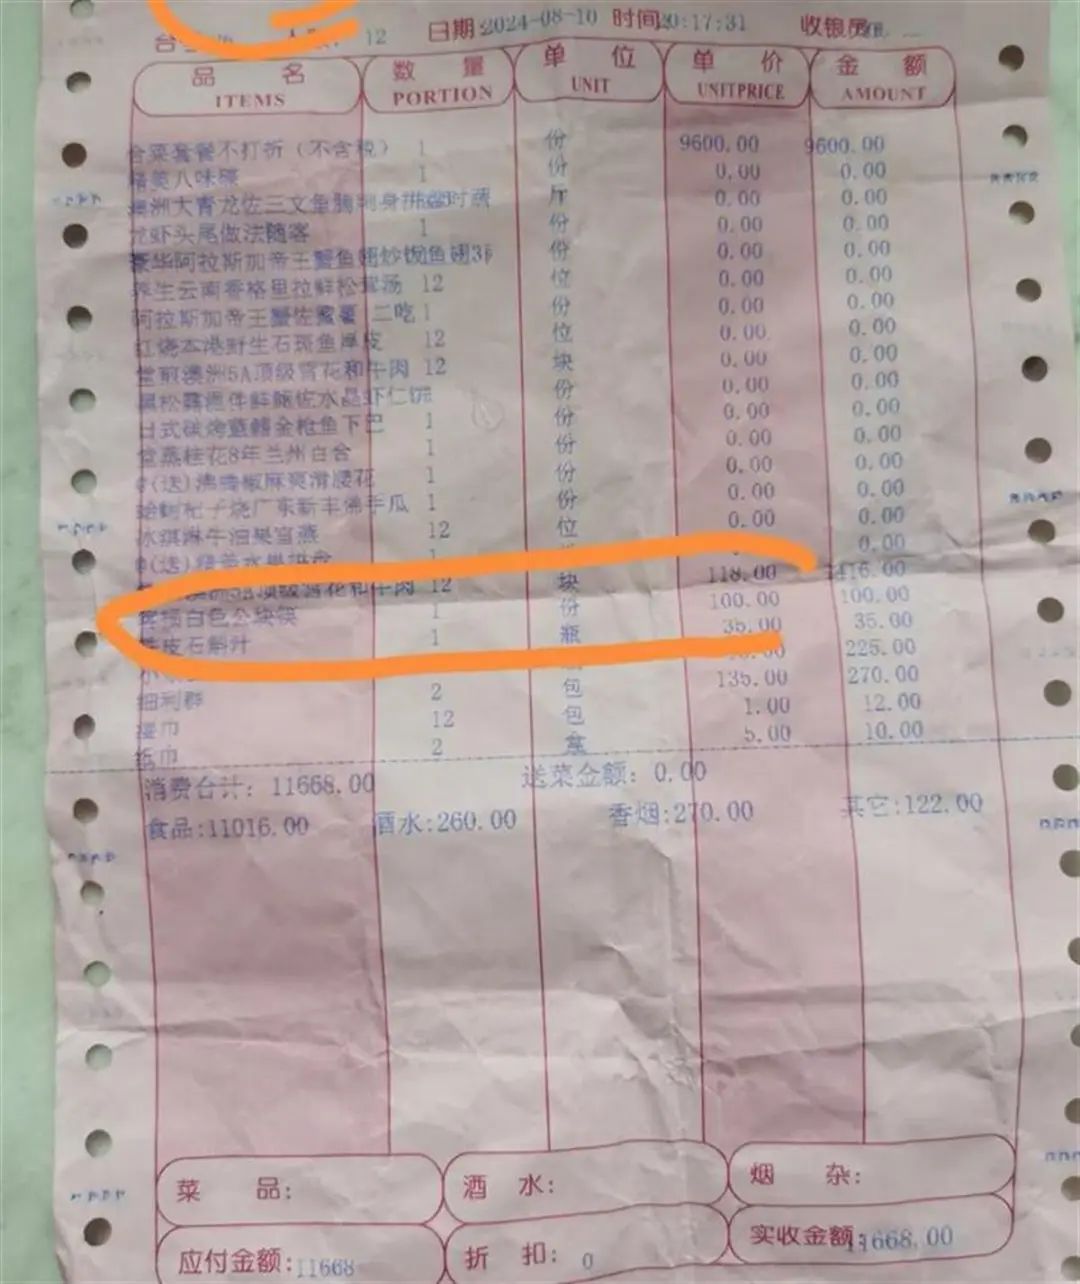 12 日期:2024-08-10 时间20:17:31 收银员
品 名 数 量 单 位 单 价 金 额
ITEMS PORTION UNIT UNITPRICE AMOUNT
套餐不打折(不含税) 1 份 9600.00 9600.00
八味碟 1 份 0.00 0.00
澳洲大青龙佐三文鱼 刺身拼 时蔬 斤 0.00 0.00
龙虾头尾做法随客 1 份 0.00 0.00
豪华阿拉斯加帝王蟹鱼翅炒 鱼翅3 份 0.00 0.00
养生云南香格里拉鲜松茸汤 12 位 0.00 0.00
阿拉斯加帝王蟹佐 二吃 1 份 0.00 0.00
红烧本港野生石斑鱼厚皮 12 位 0.00 0.00
堂煎澳洲5A顶级雪花和牛肉 12 块 0.00 0.00
黑松露 鲜鲍佐水晶虾仁饺 份 0.00 0.00
日式碳烤蓝鳍金枪鱼下巴 1 份 0.00 0.00
堂蒸桂花8年兰州百合 1 份 0.00 0.00
(送)沸腾椒麻爽滑腰花 1 份 0.00 0.00
烧广东新丰佛手瓜 1 份 0.00 0.00
冰淇淋牛油果官燕 12 位 0.00 0.00
(送) 水果拼盘 1 0.00
5A顶级雪花和牛肉 12 块 118.00 1416.00
白色公块筷 1 份 100.00 100.00
皮石斛汁 1 瓶 35.00 35.00
225.00
细利群 2 包 135.00 270.00
湿巾 12 包 1.00 12.00
纸巾 2 盒 5.00 10.00
消费合计: 11668.00 送菜金额: 0.00
食品:11016.00 酒水:260.00 香烟:270.00 其它:122.00
菜 品: 酒 水: 烟 杂:
应付金额:11668 折 扣: 0 实收金额:11668.00